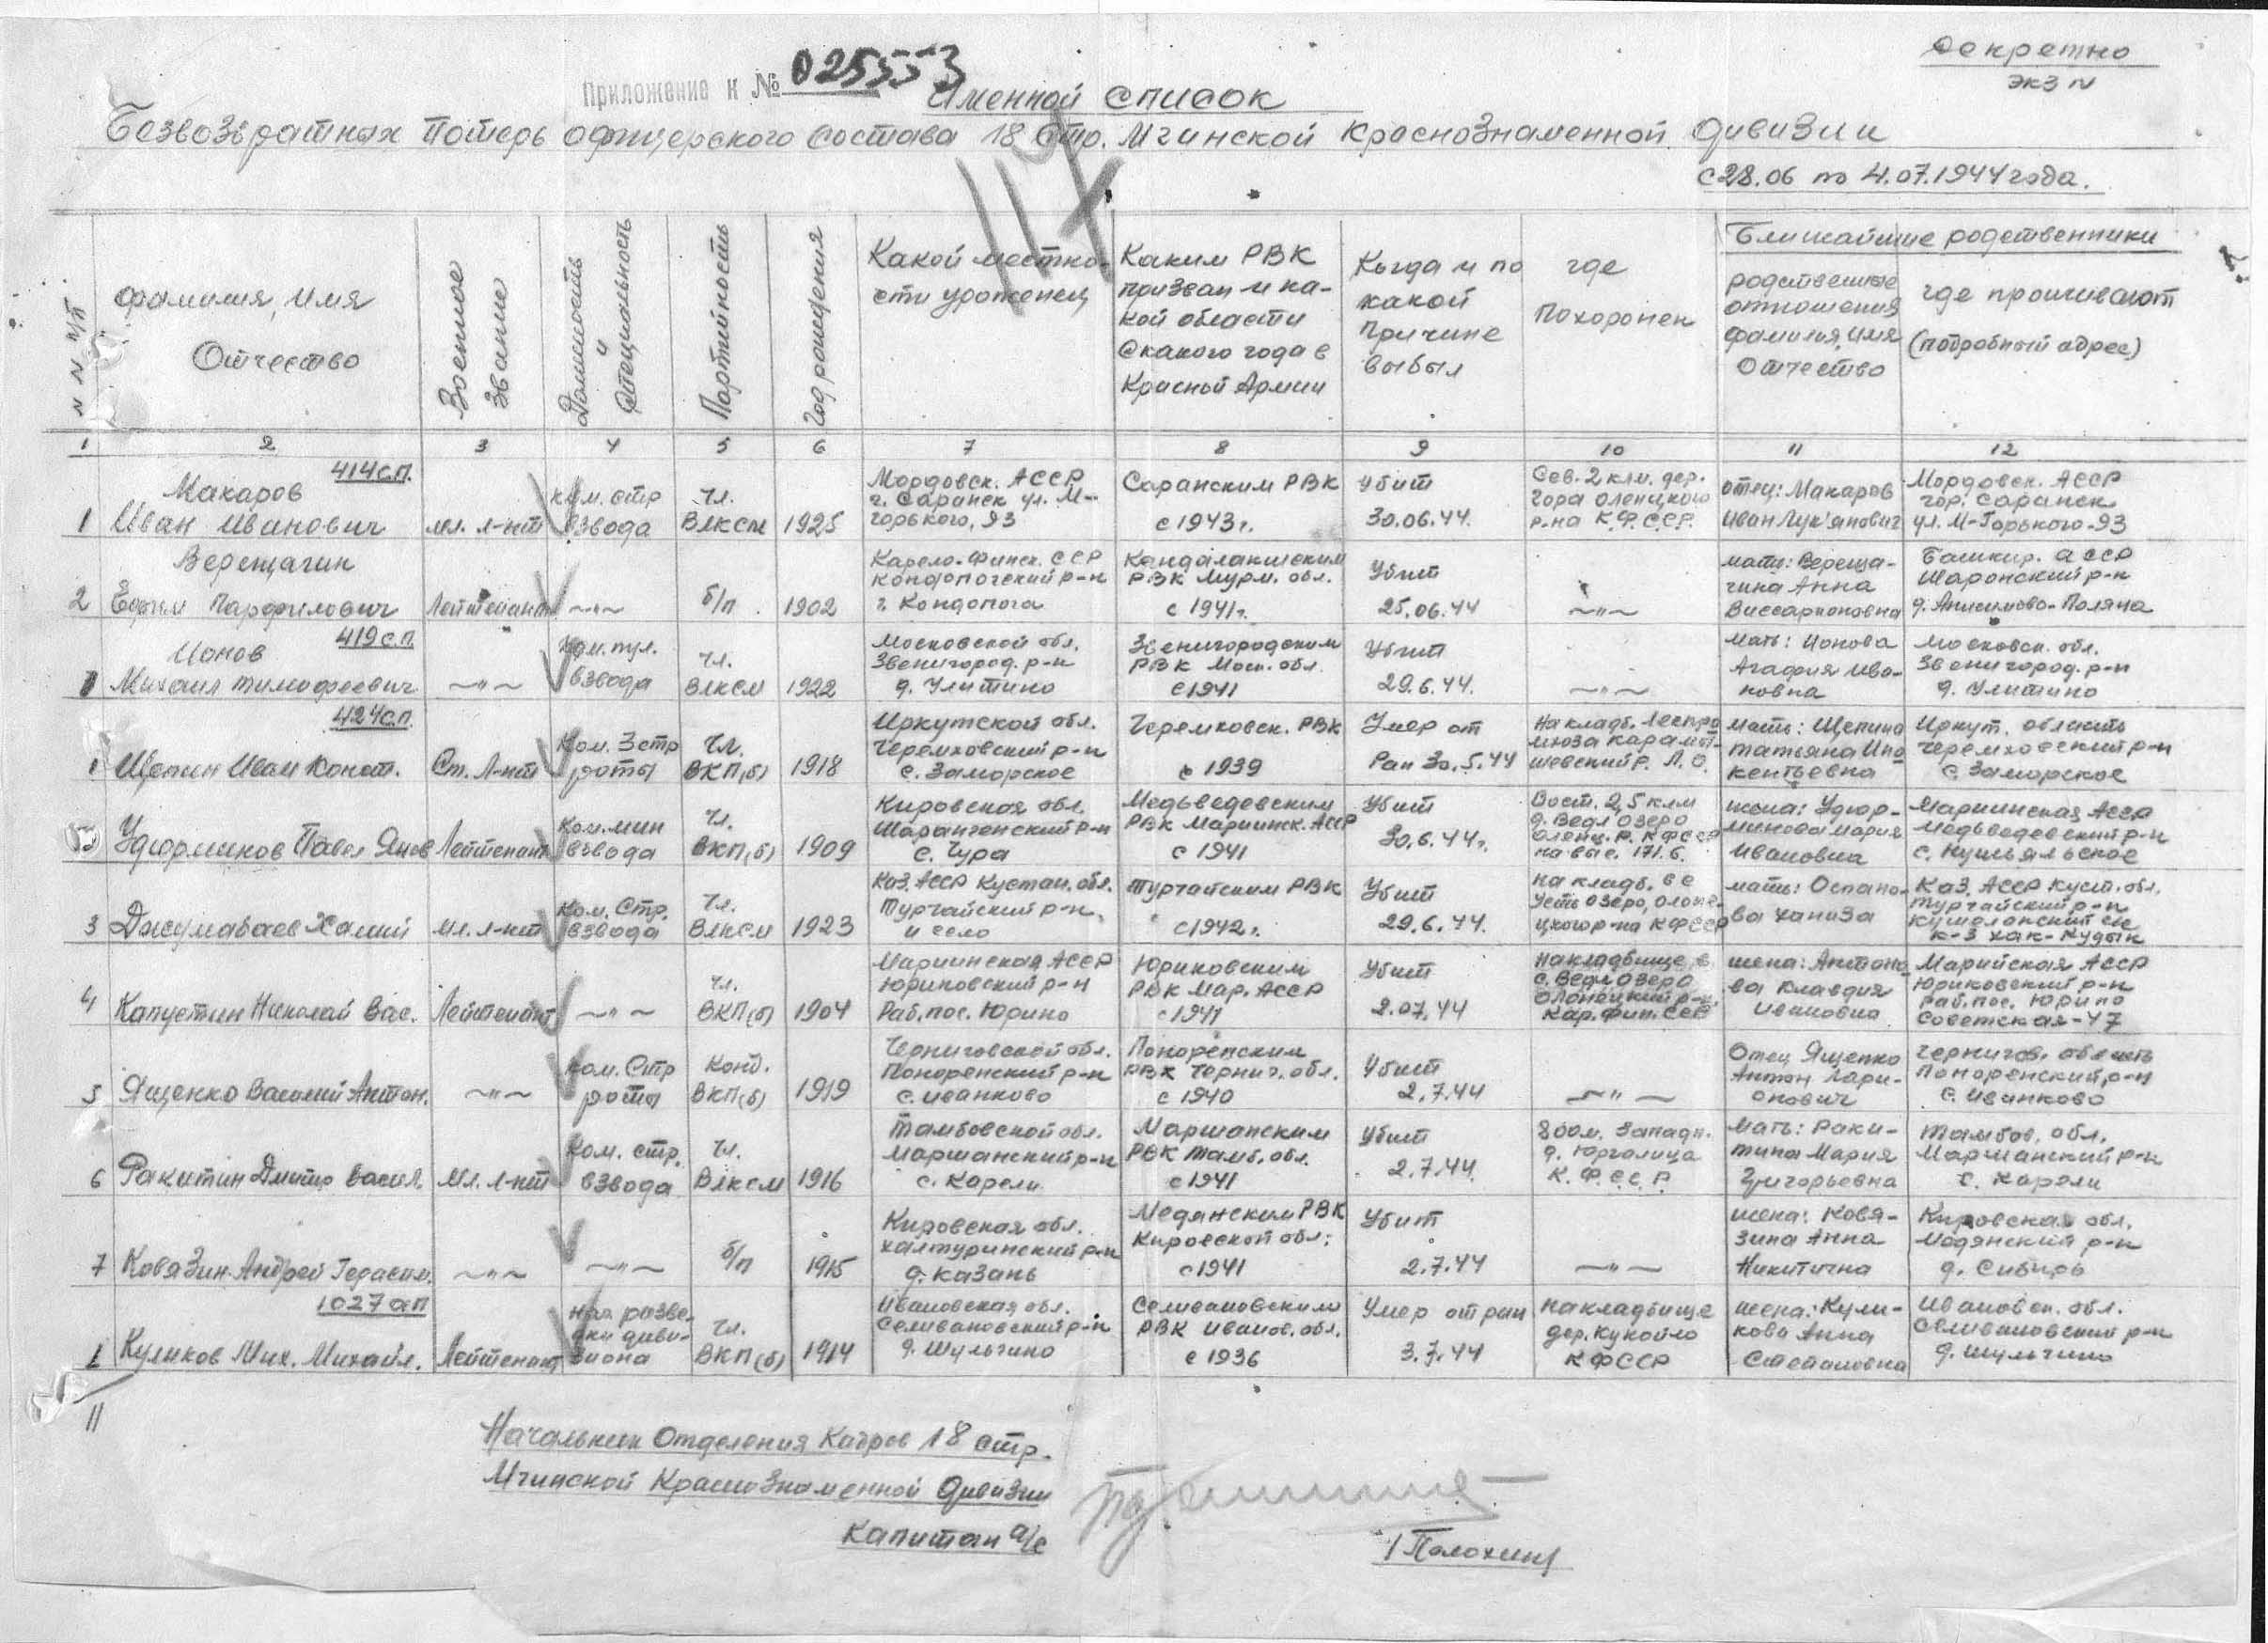 Секретно
экз N
Приложение к № 025553
Именной список
Безвозвратных потерь офицерского состава 18 Стр. Мгинской Краснознаменной дивизии
с 28.06 по 4.07.1944 года.
N N п/п
Фамилия, Имя Отчество
Военное звание
Должность и специальность
Партийность
Год рождения
Какой местно-
сти уроженец
Каким РВК
призван и ка-
кой области
с какого года в
Красной Армии
Когда и по
какой
причине
выбыл
где
похоронен
Ближайшие родственники
родственные
отношения
фамилия, имя
отчество
где проживают
(подробный адрес)
1 2 3 4 5 6 7 8 9 10 11 12
414 с.п.
1
Макаров
Иван Иванович
мл. л-нт
ком. стр
взвода
чл.
ВЛКСМ
1925
Мордовск. АССР
г. Саранск ул. М-
горького, 93
Саранским РВК
с 1943 г.
Убит
30.06.44.
Сев. 2 км. дер.
Гора Олонецкого
р-на К.Ф.С.С.Р.
отец: Макаров
Иван Лук'янович
Мордовск. АССР
гор. Саранск
ул. М-Горького-93
2
Верещагин
Ефим Парфилович
Лейтенант
~"~
б/п
1902
Карело-Финск. ССР
Кондопогский р-н
г. Кондопога
Кандалакшским
РВК Мурм. обл.
с 1941 г.
Убит
25.06.44
~"~
мать: Вереща-
гина Анна
Виссарионовна
Башкир. АССР
Шаронский р-н
д. Анисимово-Поляна
419 с.п.
1
Ионов
Михаил Тимофеевич
~"~
Ком. пул.
взвода
Чл.
ВЛКСМ
1922
Московской обл.
Звенигород. р-н
д. Улитино
Звенигородским
РВК Моск. обл.
с 1941
Убит
29.6.44.
~"~
Мать: Ионова
Агафия Ива-
новна
Московск. обл.
Звенигород. р-н
д. Улитино
424 с.п.
1
Щепин Иван Конст.
Ст. Л-нт
Ком. 3 стр
роты
Чл.
ВКП(б)
1918
Иркутской обл.
Черемховский р-н
с. Заморское
Черемховск. РВК
с 1939
Умер от
Ран 30.5.44
На кладб. Леспро
мхоза
Л.О.
мать: Щепина
Татьяна Ино
кентьевна
Иркут. область
Черемховский р-н
с. Заморское
Удюрминов Павел Яков
Лейтенант
Ком. мин
взвода
Чл.
ВКП(б)
1909
Кировская обл.
Шарангенский р-н
с. Чура
Медьведевским
РВК Мариинск. АССР
с 1941
Убит
30.6.44 г.
Вост. 2,5 км
д. Ведлозеро
Олонец. Р. КФССР
на выс. 171.6.
жена: Удюр-
минова Мария
Ивановна
Мариинская АССР
Медьведевский р-н
с. Кушьяльское
3
Джумабаев Хамий
Мл. л-нт
Ком. Стр.
взвода
Чл.
ВЛКСМ
1923
Каз. АССР Кустан. обл.
Тургайский р-н,
и село
Тургайским РВК
с 1942 г.
Убит
29.6.44.
На кладб. в с
Усть Озеро, Олоне-
цкого р-на КФССР
мать: Оспано-
ва Ханиза
Каз. АССР Куст. обл.
Тургайский р-н
к-з Хак-Кудык
4
Капустин Николай Вас.
Лейтенант
~"~
чл.
ВКП(б)
1904
Мариинская АССР
Юриновский р-н
Раб. пос. Юрино
Юриковским
РВК Мар. АССР
с 1941
Убит
2.07.44
На кладбище в
с. Ведлозеро
Олонецкий р-н.
Кар. Фин. ССР
жена: Антоно
ва Клавдия
Ивановна
Марийская АССР
Юриковский р-н
раб. пос. Юрино
Советская-47
5
Ященко Василий Антон.
~"~
Ком. Стр
роты
Конд.
ВКП(б)
1919
Черниговской обл.
Понорненский р-н
с. Иванково
Понорепским
РВК Чернич. обл.
с 1940
Убит
2.7.44
~"~
Отец Ященко
Антон Лари-
онович
Чернигов. область
Поноренский р-н
с. Иванково
6
Ракитин Дмитр Васил.
Мл. л-нт
Ком. стр.
взвода
Чл.
ВЛКСМ
1916
Тамбовской обл.
Маршанский р-н
с. Карели
Маршанским
РВК Тамб. обл.
с 1941
Убит
2.7.44.
800 м. Западн.
д. Юргалица
К.Ф.С.С.Р.
Мать: Раки-
тина Мария
Григорьевна
Тамбов. обл.
Маршанский р-н
с. Карели
7
Ковязин Андрей Герасим.
~"~
~"~
б/п
1915
Кировская обл.
Халтуринский р-н
д. Казань
Медянским РВК
Кировской обл.
с 1941
Убит
2.7.44
~"~
жена: Ковя-
зина Анна
Никитична
Кировская обл.
Медянский р-н
д. Сибирь
1027 ап
1
Куликов Мих. Михайл.
Лейтенант
нач разве-
дки диви-
зиона
Чл.
ВКП(б)
1914
Ивановская обл.
Селивановский р-н
д. Шульгино
Селивановским
РВК Иванов. обл.
с 1936
Умер от ран
3.7.44
На кладбище
дер. Кукойло
КФССР
жена: Кули-
кова Анна
Степановна
Ивановск. обл.
Селивановский р-н
д. Шульгино
11
Начальник Отделения Кадров 18 стр.
Мгинской Краснознаменной дивизии
Капитан а/с
/Полохин/